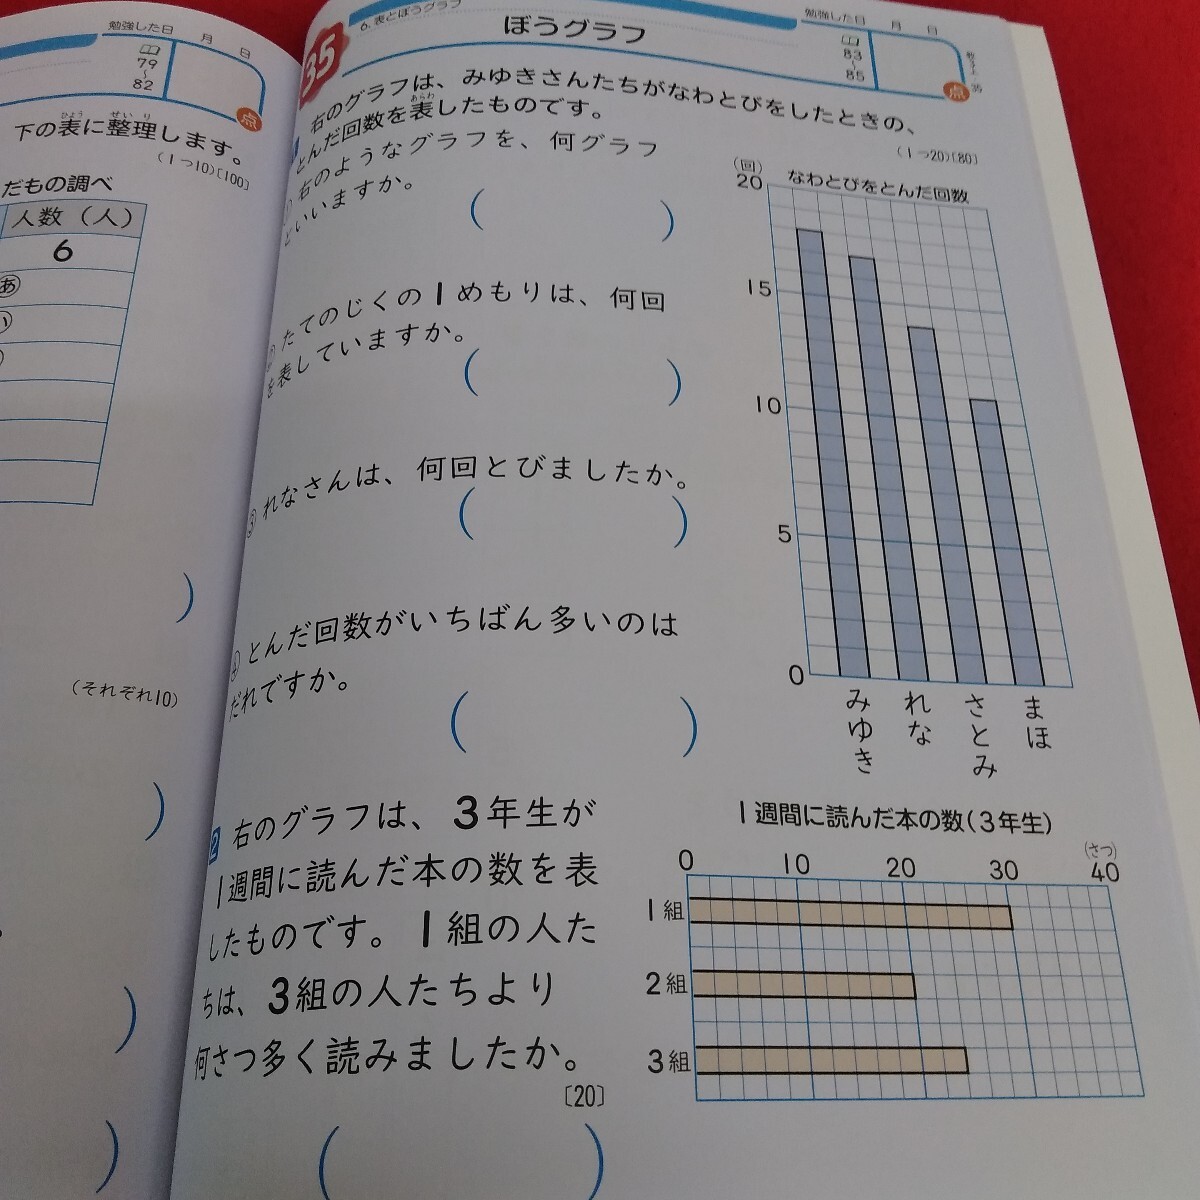 勉強した日　月　日
79
〜
82
点
下の表に整理します。
ひょう　せいり
(1つ10)〔100〕
だもの調べ
人数（人）
6
あ
(それぞれ10)
35
6. 表とぼうグラフ
ぼうグラフ
勉強した日　月　日
83
〜
85
点
右のグラフは、みゆきさんたちがなわとびをしたときの、
とんだ回数を表したものです。
あらわ
(1つ20)〔80〕
右のようなグラフを、何グラフ
といいますか。
(　　)
② たてのじくの1めもりは、何回
を表していますか。
(　　)
③ れなさんは、何回とびましたか。
(　　)
④ とんだ回数がいちばん多いのは
だれですか。
(　　)
(回)
なわとびをとんだ回数
20
15
10
5
0
みゆき
れな
さとみ
まほ
2 右のグラフは、3年生が
1週間に読んだ本の数を表
したものです。1組の人た
ちは、3組の人たちより
何さつ多く読みましたか。
〔20〕
(　　)
1週間に読んだ本の数(3年生)
(さつ)
0　10　20　30　40
1組
2組
3組